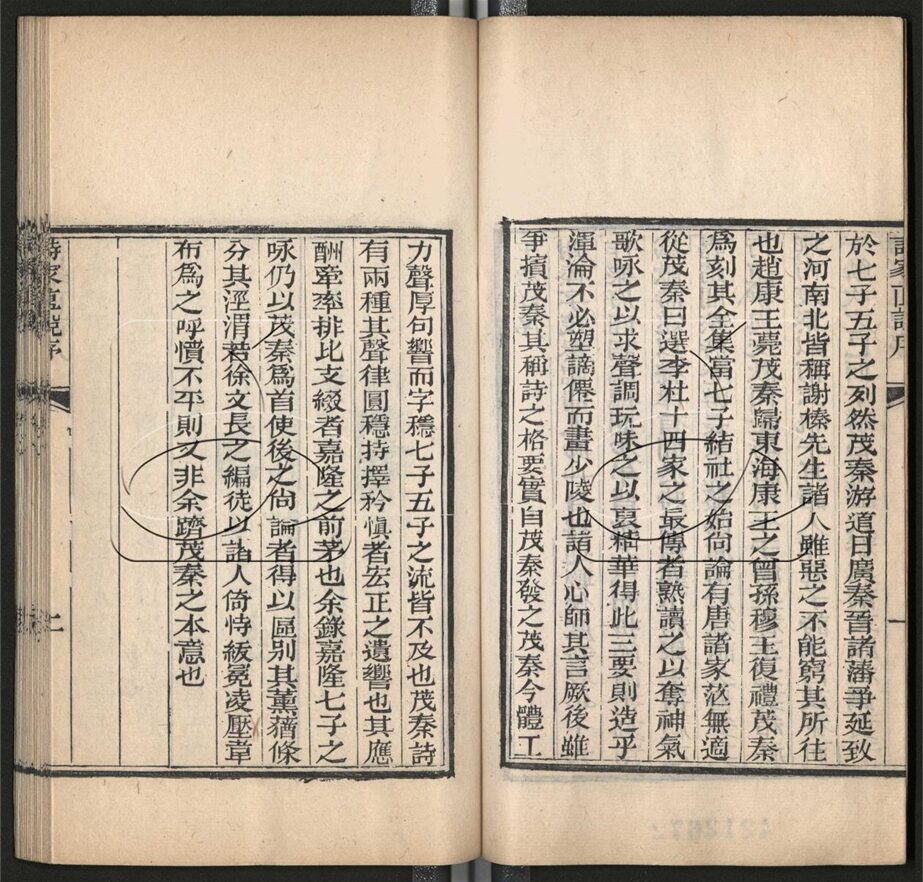 於七子五子之列然茂秦游道日廣秦晉諸藩爭延致
之河南北皆稱謝榛先生諸人雖惡之不能窮其所往
也趙康王薨茂秦歸東海康王之曾孫穆王復禮茂秦
爲刻其全集當七子結社之始尙論有唐諸家茫無適
從茂秦曰選李杜十四家之最傳者熟讀之以奪神氣
歌咏之以求聲調玩味之以裒精華得此三要則造乎
渾淪不必塑謫僊而畫少陵也諸人心師其言厥後雖
爭擯茂秦其稱詩之格要實自茂秦發之茂秦今體工
詩家直說序
一
力聲厚句響而字穩七子五子之流皆不及也茂秦詩
有兩種其聲律圓穩持擇矜慎者宏正之遺響也其應
酬牽率排比支綴者嘉隆之前茅也余錄嘉隆七子之
咏仍以茂秦爲首使後之尙論者得以區別其薰蕕條
分其涇渭若徐文長之編徒以諸人倚恃紱冕凌壓韋
布爲之呼憤不平則又非余躋茂秦之本意也
詩家直說序
二